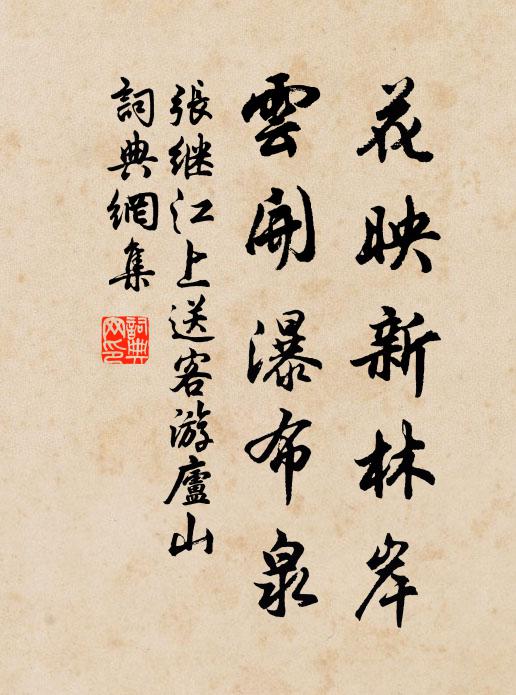 花映新林岸
雲開瀑布泉
張继江上送客游廬山
詞典網集
詞典網印